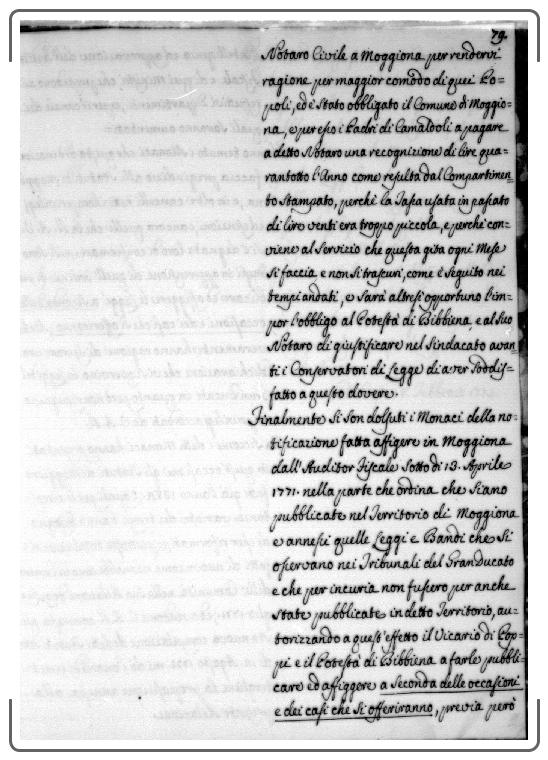 79.
Notaro Civile a Moggiona per rendervi
ragione per maggior comodo di quei Po-
poli, ed è Stato obbligato il Comune di Moggio-
na, e per esso i Padri di Camaldoli a pagare
a detto Notaro una recognizione di lire qua-
rantotto l'Anno come resulta dal Compartimen
to Stampato, perchè la Tassa usata in passato
di lire venti era troppo piccola, e perchè con-
viene al Servizio che questa gita ogni Mese
Si faccia e non si trascuri, come è Seguito nei
tempi andati, e Sarà altresì opportuno l'im-
por l'obbligo al Potestà di Bibbiena, e al Suo
Notaro di giustificare nel Sindacato avan
ti i Conservatori di Legge d'aver Soddis-
fatto a questo dovere.
Finalmente Si Son dolsuti i Monaci della no-
tificazione fatta affigere in Moggiona
dall'Auditor Fiscale Sotto dì 13. Aprile
1771. nella parte che ordina che Siano
pubblicate nel Territorio di Moggiona
e annessi quelle Leggi e Bandi che Si
osservano nei Tribunali del Granducato
e che per incuria non fussero per anche
State pubblicate in detto Territorio, au-
torizzando a quest'effetto il Vicario di Pop-
pi e il Potestà di Bibbiena a farle pubbli-
care ed affiggere a Seconda delle occasioni
e dei casi che Si offeriranno, previa però